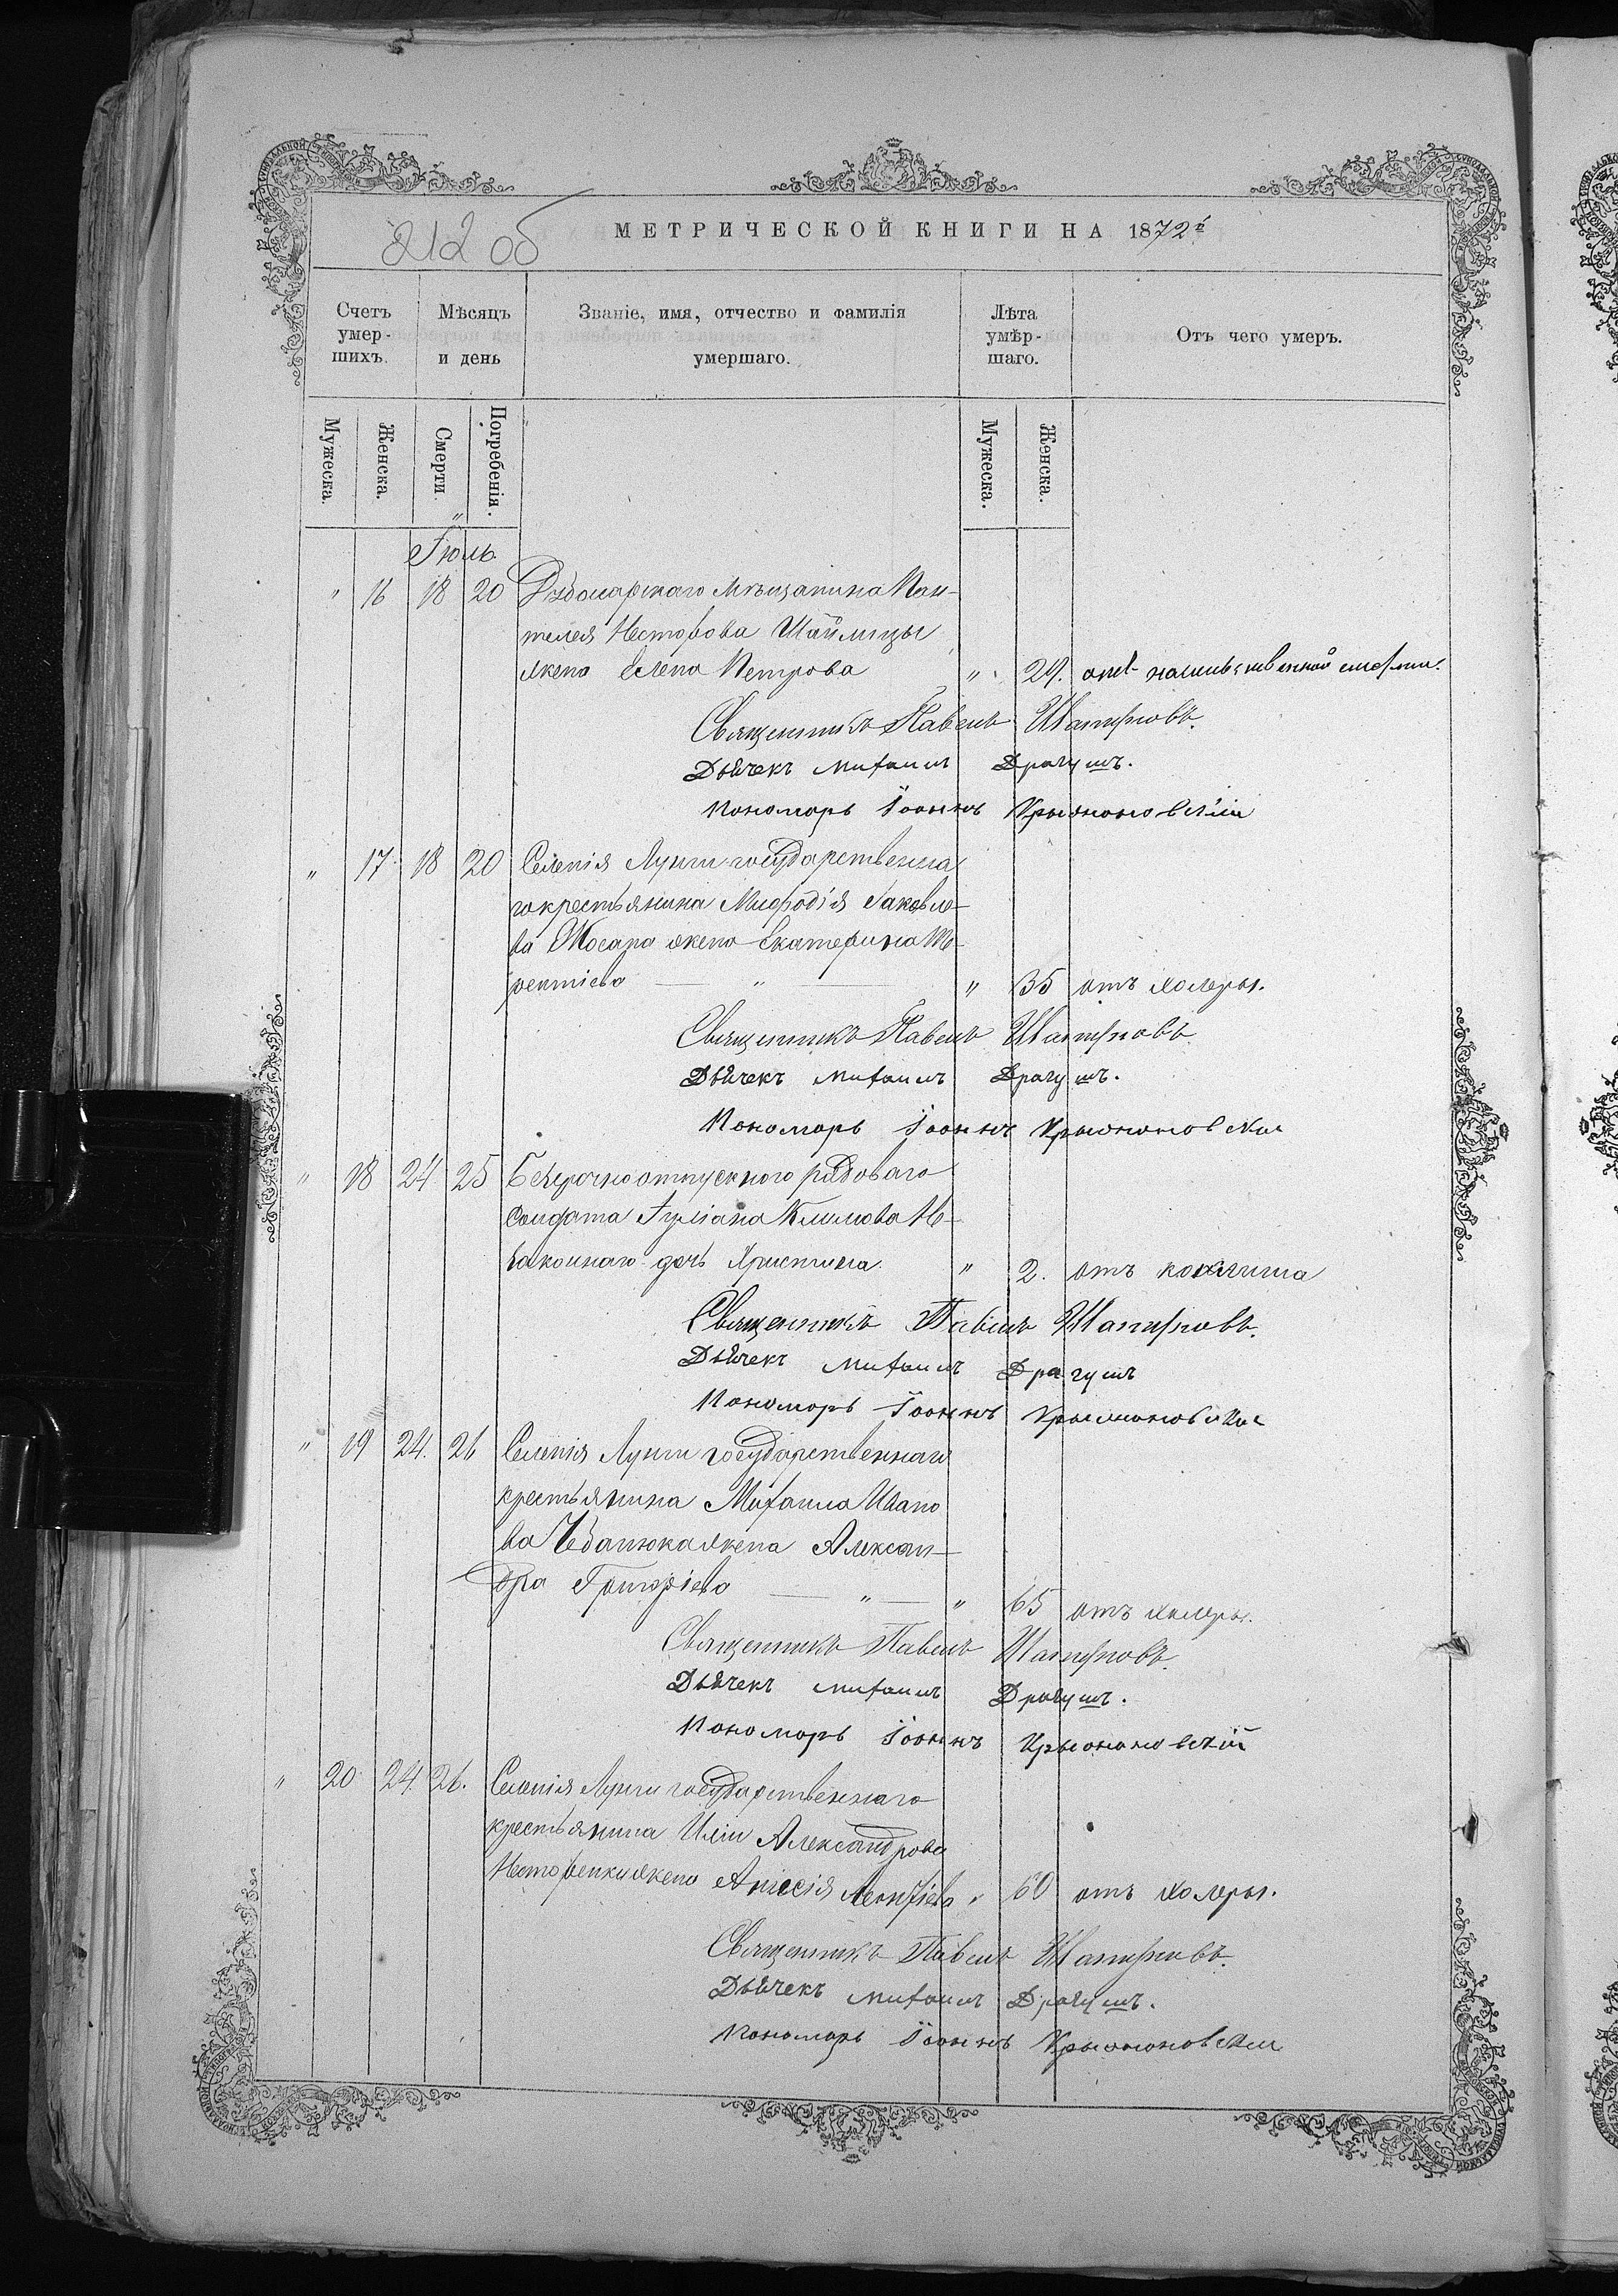 212 об
МЕТРИЧЕСКОЙ КНИГИ НА 1872й
Счетъ умер-шихъ. Мѣсяцъ и день Званіе, имя, отчество и фамилія умершаго. Лѣта умѣр-шаго. Отъ чего умеръ.
Мужеска. Женска. Смерти Погребенія. Мужеска. Женска.
Іюль
" 16 18 20 мѣщанина Пан-
телея Несторова
жена Елена Петрова " 29. отъ смерти.
Священникъ Павелъ
Дьячекъ Михаилъ Драгушъ.
Пономарь Іоаннъ Крыжановскій
" 17 18 20 Селенія Лунги государственна
го крестьянина Мефодія Іаковле-
ва жена Екатерина Те-
рентіева " " 35 отъ холеры.
Священникъ Павелъ
Дьячекъ Михаилъ Драгушъ.
Пономарь Іоаннъ Крыжановскій
" 18 24 25 Безсрочноотпускного рядоваго
солдата Іуліана Климова
дочь Христина " 2. отъ коклюша
Священникъ Павелъ
Дьячекъ Михаилъ Драгушъ
Пономарь Іоаннъ Крыжановскій
" 19 24. 26 Селенія Лунги государственнаго
крестьянина Михаила Ивано
ва жена Алексан-
дра Григоріева " " 65 отъ холеры.
Священникъ Павелъ
Дьячекъ Михаилъ Драгушъ.
Пономарь Іоаннъ Крыжановскій
" 20 24 26. Селенія Лунги государственнаго
крестьянина Иліи Александрова
Несторенки жена Анисія Леонтіева " 60 отъ холеры.
Священникъ Павелъ
Дьячекъ Михаилъ Драгушъ.
Пономарь Іоаннъ Крыжановскій